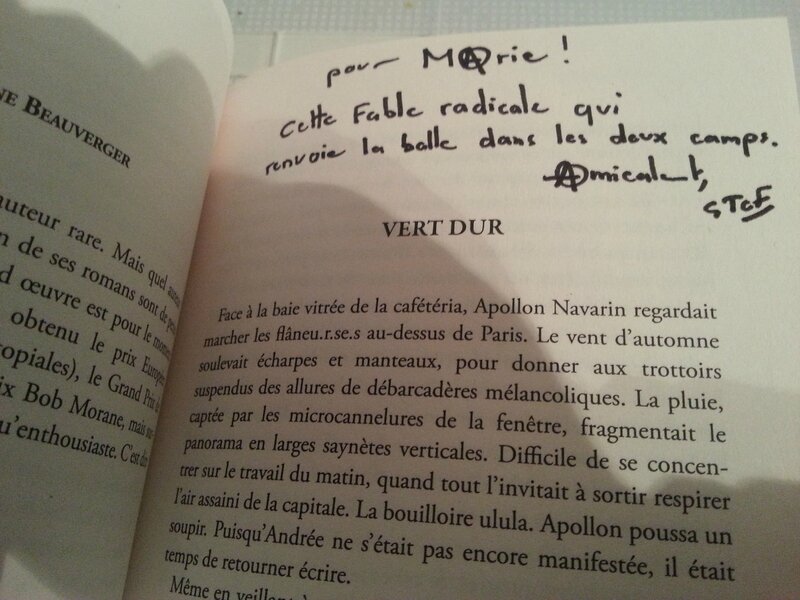 NE BEAUVERGER
auteur rare. Mais quel
de ses romans sont de
œuvre est pour le
obtenu le prix
opiales), le Grand
Bob Morane, mais
qu'enthousiaste. C'est
pour MArie !
cette Fable radicale qui
renvoie la balle dans les deux camps.
Amicalent,
STeF
VERT DUR
Face à la baie vitrée de la cafétéria, Apollon Navarin regardait
marcher les flâneu.r.se.s au-dessus de Paris. Le vent d'automne
soulevait écharpes et manteaux, pour donner aux trottoirs
suspendus des allures de débarcadères mélancoliques. La pluie,
captée par les microcannelures de la fenêtre, fragmentait le
panorama en larges saynètes verticales. Difficile de se concen-
trer sur le travail du matin, quand tout l'invitait à sortir respirer
l'air assaini de la capitale. La bouilloire ulula. Apollon poussa un
soupir. Puisqu'Andrée ne s'était pas encore manifestée, il était
temps de retourner écrire.
Même en veillant à